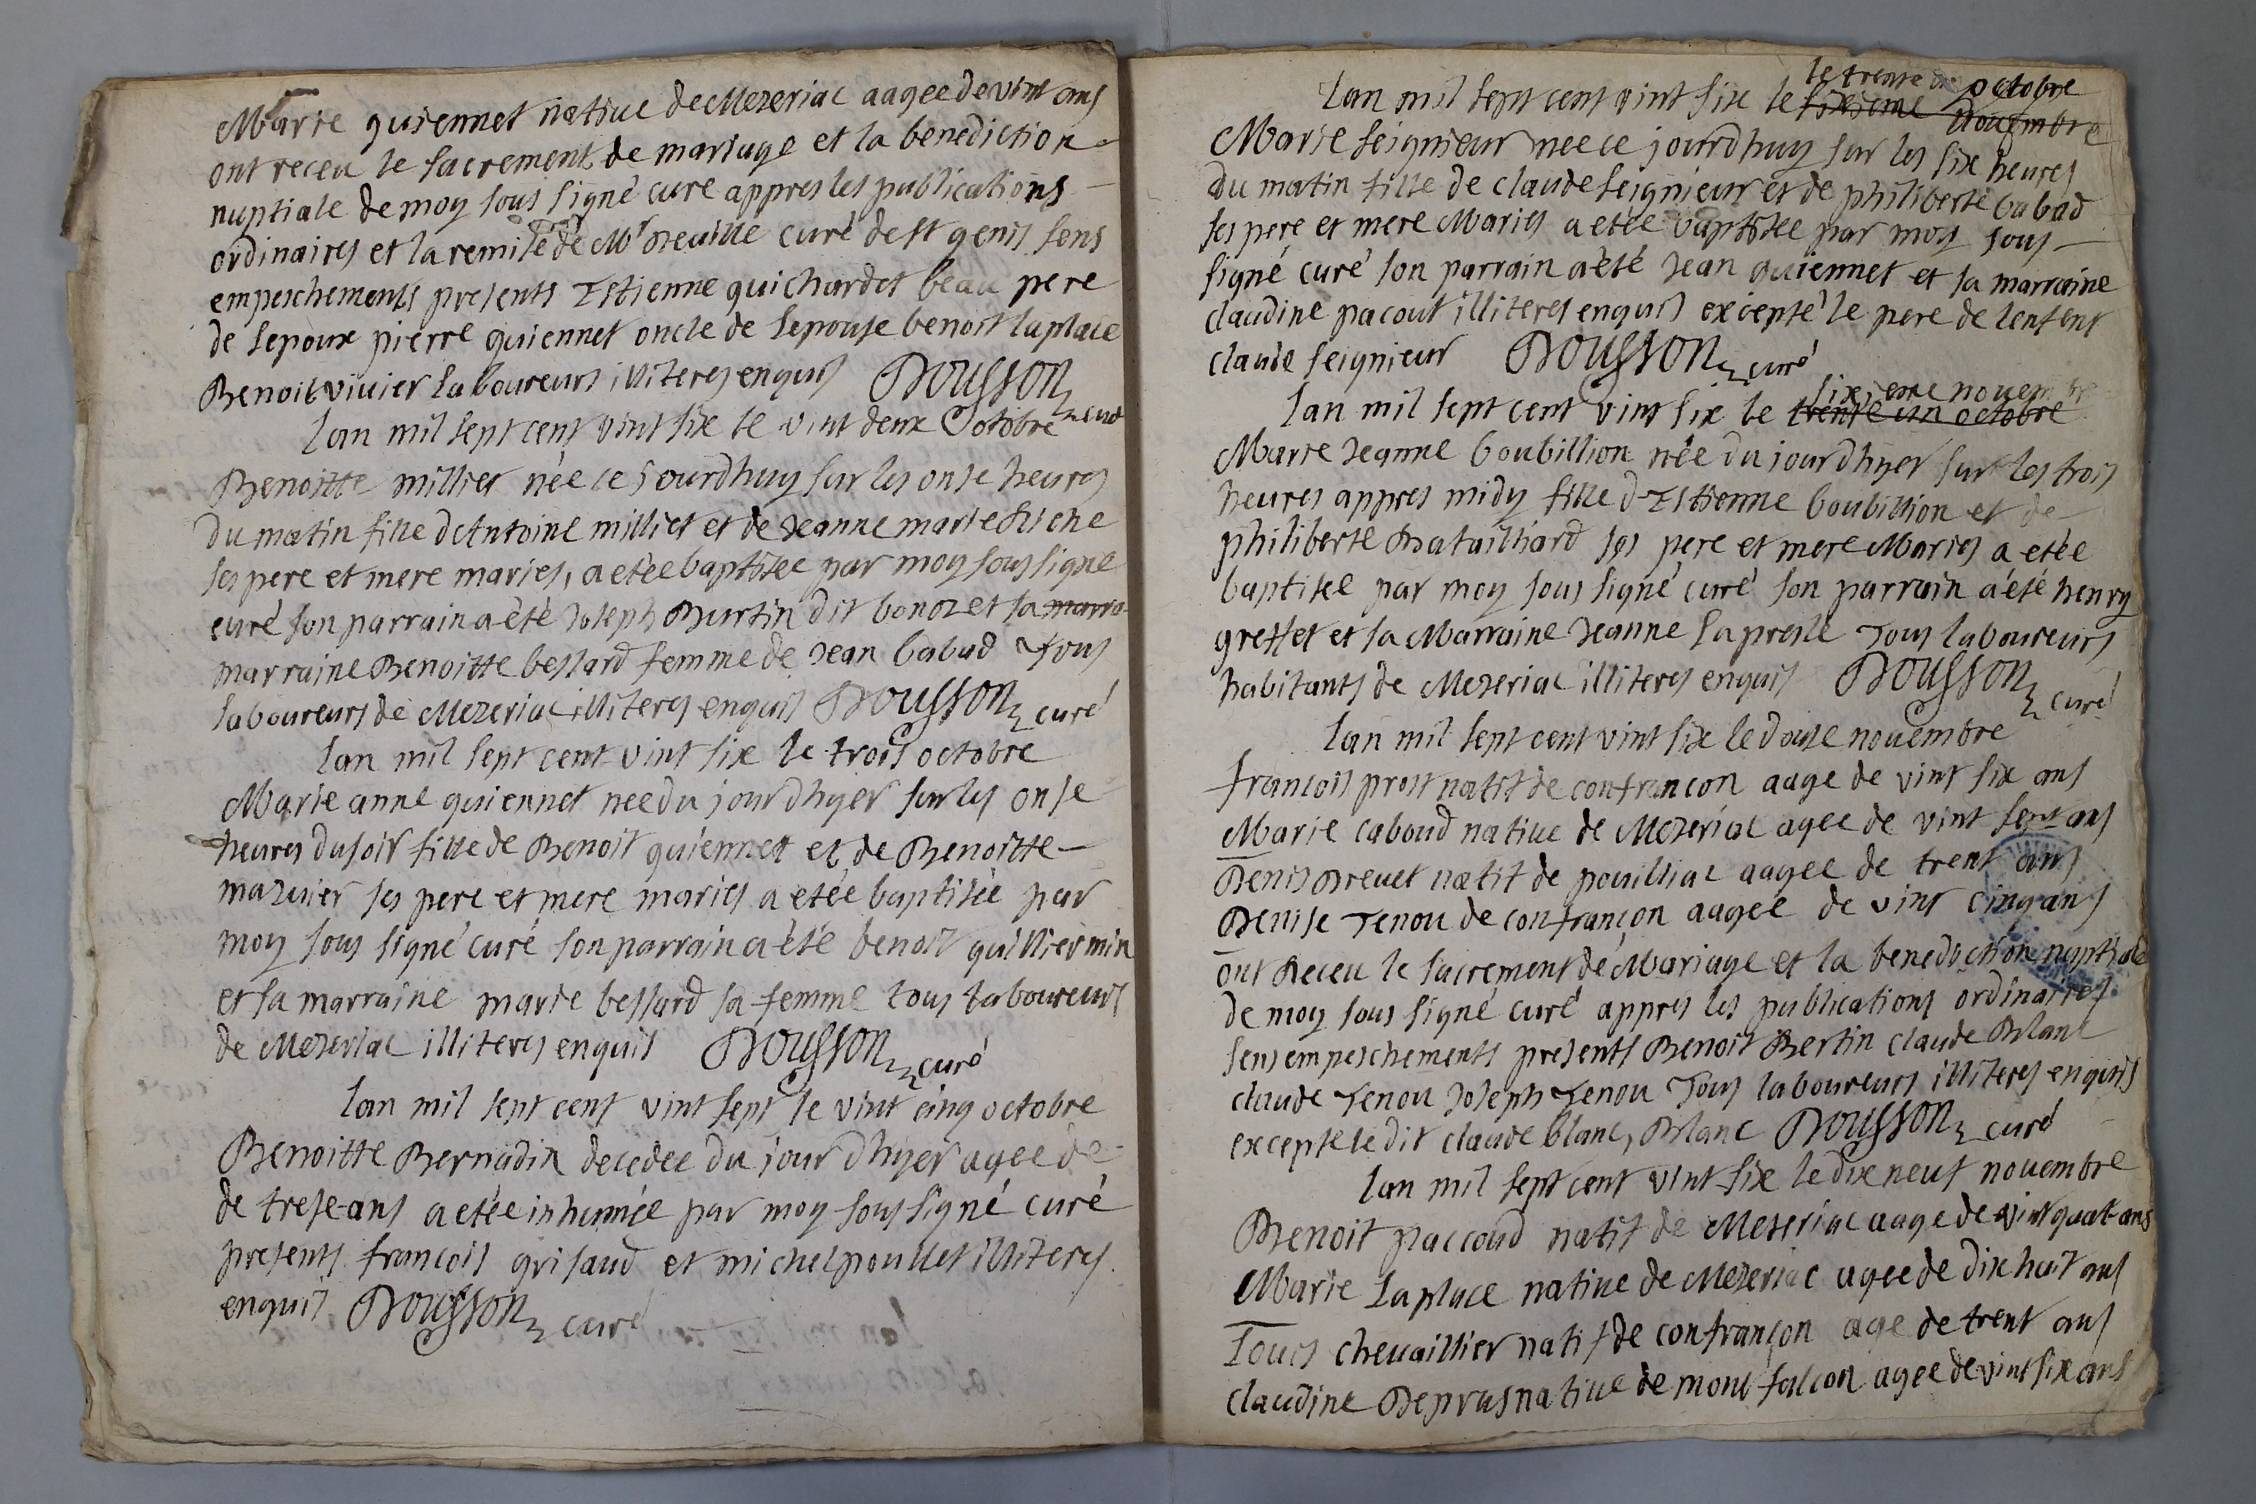 Marie guiennet natiue de Mezeriac aagee de vint ans
ont receu le sacrement de mariage et la benediction
nuptiale de moy sous signé curé appres les publications
ordinaires et la remise de Mr curé de st genis sens
empeschements presents Estienne guichardet beau pere
de lepoux pierre guiennet oncle de lepouse benoit laplace
Benoit viuier laboureurs illiteres enquis Dousson curé
lan mil sept cent vint six le vint deux octobre
Benoitte millier née ce jourdhuy sur les onse heures
du matin fille dAntoine milliet et de Jeanne marie
ses pere et mere maries, a etée baptisee par moy sous signé
curé son parrain a été Joseph Burtin dit bonoz et sa marra
marraine Benoitte bessard femme de Jean babad tous
laboureurs de Mezeriac illiteres enquis Dousson curé
lan mil sept cent vint six le trois octobre
Marie anne guiennet nee du jour dhyer sur les onse
heures du soir fille de Benoit guiennet et de Benoitte
mazuier ses pere et mere maries a etée baptisée par
moy sous signé curé son parrain a été benoit guilliermin
et sa marraine marie bessard sa femme tous laboureurs
de Mezeriac illiteres enquis Dousson curé
lan mil sept cent vint sept le vint cinq octobre
Benoitte Bernadin decedee du jour dhyer agee de
de trese ans a etée inhumée par moy sous signé curé
presents françois grisaud et michel poullet illiteres
enquis Dousson curé
le trente un octobre
lan mil sept cent vint six le sixieme Nouembre
Marie seignieur nee ce jourdhuy sur les six heures
du matin fille de claude seignieur et de philiberte babad
ses pere et mere Maries a etée baptisee par moy sous
signé curé son parrain a été Jean guiennet et sa marraine
claudine pacout illiteres enquis excepté le pere de lenfent
claude seignieur Dousson curé
sixieme nouembre
lan mil sept cent vint six le trente un octobre
Marie Jeanne boubillion née du jour dhyer sur les trois
heures appres midy fille d'Estienne boubillion et de
philiberte Batailliard ses pere et mere Maries a etée
baptisée par moy sous signé curé son parrain a été henry
greffet et sa Marraine Jeanne la presle Tous laboureurs
habitants de Mezeriac illiteres enquis Dousson curé
lan mil sept cent vint six le douse nouembre
françois prost natif de confrancon aage de vint six ans
Marie caboud natiue de Mezeriac agee de vint sept ans
Denis Breuet natif de pouilliac aagee de trent ans
Denise Tenou de confrançon aagee de vint cinq ans
ont Receu le sacrement de Mariage et la benediction nuptiale
de moy sous signé curé appres les publications ordinaires
sens empeschements presents Benoit Bertin claude Blanc
claude Tenou Joseph Tenou Tous laboureurs illiteres enquis
excepte le dit claude blanc, Blanc Dousson curé
lan mil sept cent vint six le dix neuf nouembre
Benoit paccoud natif de Mezeriac aage de vint quat ans
Marie Laplace natiue de Mezeriac agee de dix huit ans
Louis cheuaillier natif de confrançon age de trent ans
claudine Depras natiue de mont falcon agee de vint six ans